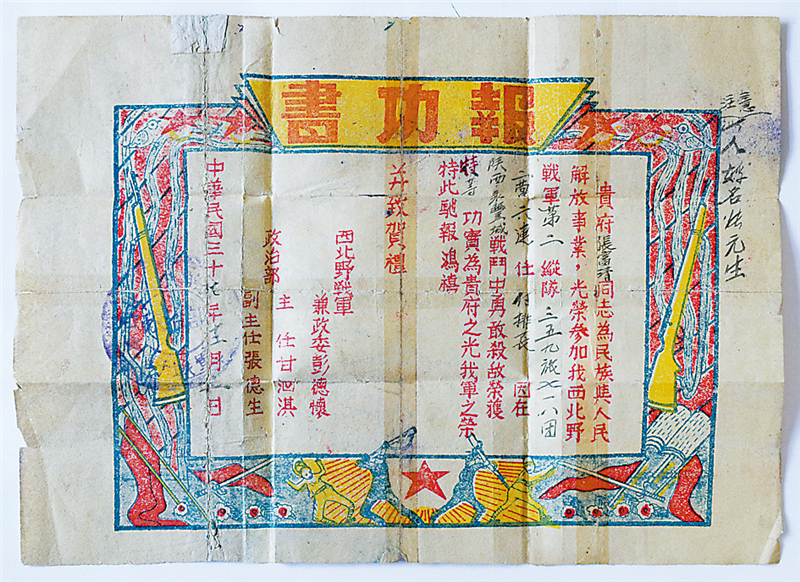 報功書
貴府張富清同志為民族與人民
解放事業，光榮參加我西北野
戰軍第二縱隊三五九旅七一八団
二營六連任付排長因在
陝西永豐城戰鬥中勇敢殺敵榮獲
特等功實為貴府之光我軍之榮
特此馳報鴻禧
并致賀禮
西北野戰軍
兼政委彭德懷
政治部
主任甘泗淇
副主任張德生
中華民國三十七年月日
注意